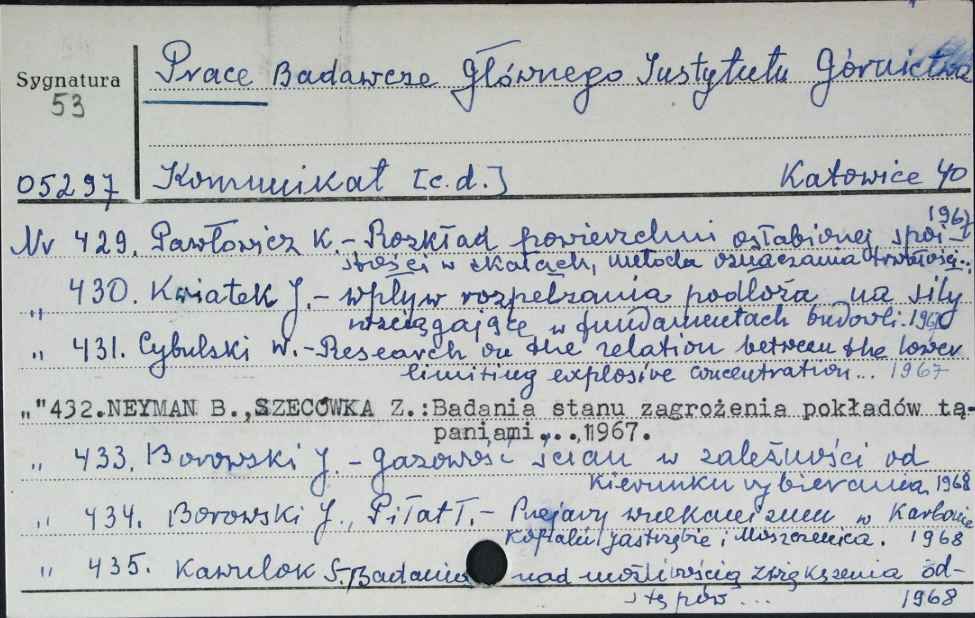 Prace Badawcze Głównego Instytutu Górnictwa
Sygnatura
53
05297 Komunikat [c.d.] Katowice 40
Nr 429. Pawłowicz K. - Rozkład powierzchni osłabionej spoi-
stości w skałach, metoda oznaczania trwałości..
„ 430. Kwiatek J. - wpływ rozpełzania podłoża na siły
rozciągające w fundamentach budowli.
„ 431. Cybulski W. - Research on the relation between the lower
limiting explosive concentration... 1967
„"432.NEYMAN B.,SZECÓWKA Z.:Badania stanu zagrożenia pokładów tą-
paniami...,1967.
„ 433. Borowski J. - gazowość ścian w zależności od
kierunku wybierania 1968
„ 434. Borowski J., Piłat T. - Przejawy wulkanizmu w Karbonie
Kopalni Jastrzębie i Moszczenica. 1968
„ 435. Kawulok S. Badania nad możliwością zwiększenia od-
stępów ... 1968